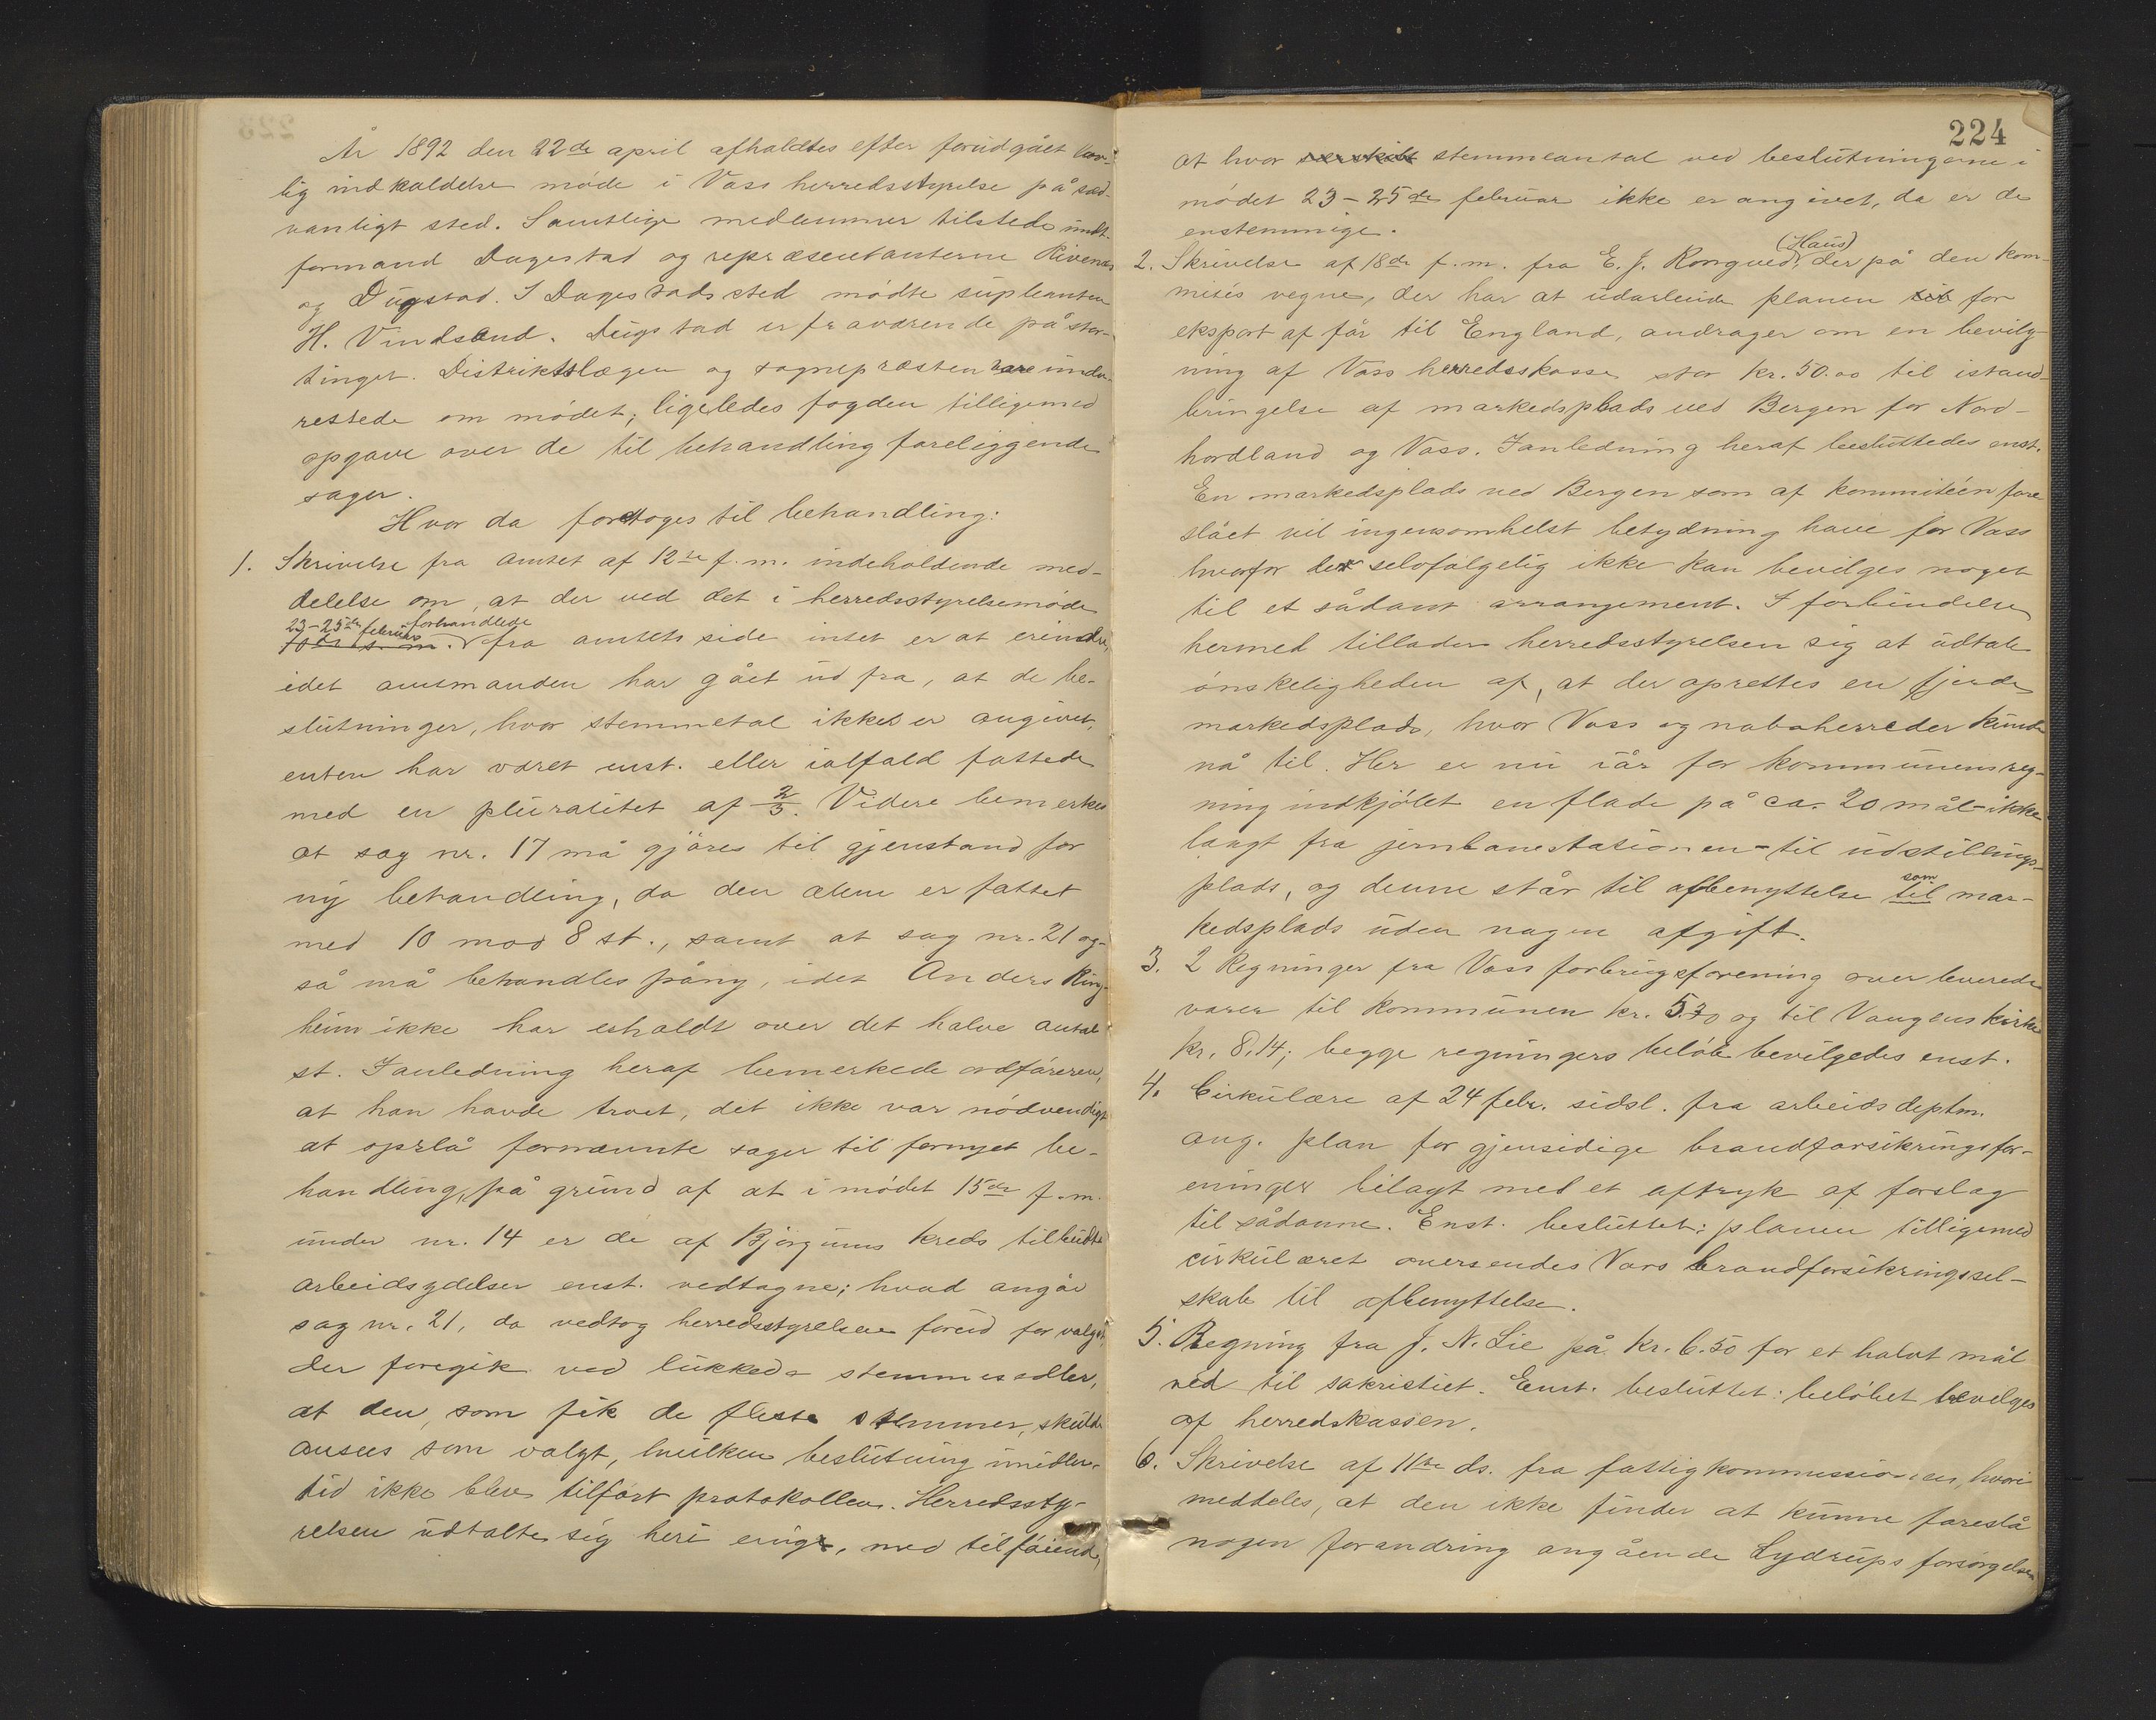 År 1892 den 22de april afholdtes efter forudgået lov-
lig indkaldelse møde i Voss herredsstyrelse på sæd-
vanligt sted. Samtlige medlemmer tilstede undt.
formand Dagestad og repræsentanterne Rivenæs
og Dugstad. I Dagestads sted mødte supleanten
H. Vindsand. Dugstad er fraværende på stor-
tinget. Distriktslægen og sognepræsten vare under-
rettede om mødet; ligeledes fogden tilligemed
opgave over de til behandling foreliggende
sager.
Hvor da foretoges til behandling:
1. Skrivelse fra amtet af 12te f.m. indeholdende med-
delelse om, at der ved det i herredsstyrelsemøde
23-25de februar forhandlede
fra amtets side intet er at erindre,
idet amtmanden har gået ud fra, at de be-
slutninger, hvor stemmetal ikke er angivet,
enten har været enst. eller ialfald fattede
med en pluralitet af 2/3. Videre bemerkes
at sag nr. 17 må gjøres til gjenstand for
ny behandling, da den alene er fattet
med 10 mod 8 st., samt at sag nr. 21 og-
så må behandles påny, idet Anders Ring-
heim ikke har erholdt over det halve antal
st. I anledning heraf bemerkede ordføreren,
at han havde troet, det ikke var nødvendigt
at opslå fornævnte sager til fornyet be-
handling, på grund af at i mødet 15de f.m.
under nr. 14 er de af Bjørgums kreds tilbudte
arbeidsydelser enst. vedtagne; hvad angår
sag nr. 21, da vedtog herredsstyrelsen forud for valget,
der foregik ved lukkede stemmesedler,
at den, som fik de fleste stemmer, skulde
ansees som valgt, hvilken beslutning imidler-
tid ikke blev tilført protokollen. Herredssty-
relsen udtalte sig heri enig, med tilføiende,
224
at hvor særskilt stemmeantal ved beslutningerne i
mødet 23-25de februar ikke er angivet, da er de
enstemmige.
2. Skrivelse af 18de f.m. fra E. J. Rongved (Haus), der på den kom-
mités vegne, der har at udarbeide planen for
eksport af får til England, andrager om en bevilg-
ning af Voss herredskasse stor kr. 50.00 til istand-
bringelse af markedsplads ved Bergen for Nord-
hordland og Voss. I anledning heraf besluttedes enst.
En markedsplads ved Bergen som af kommitéen fore-
slået vil ingensomhelst betydning have for Voss
hvorfor der selvfølgelig ikke kan bevilges noget
til et sådant arrangement. I forbindelse
hermed tillader herredsstyrelsen sig at udtale
ønskeligheden af, at der oprettes en fjerde
markedsplads, hvor Voss og naboherreder kunde
nå til. Her er nu iår for kommunens reg-
ning indkjøbt en flade på ca. 20 mål - ikke
langt fra jernbanestationen - til udstillings-
plads, og denne står til afbenyttelse til som mar-
kedsplads uden nogen afgift.
3. 2 Regninger fra Voss forbrugsforening over leverede
varer til kommunen kr. 5.30 og til Vangens kirke
kr. 8.14; begge regningers beløb bevilgedes enst.
4. Cirkulære af 24 febr. sidsl. fra arbeidsdeptm.
ang. plan for gjensidige brandforsikringsfor-
eninger bilagt med et aftryk af forslag
til sådanne. Enst. besluttet: planen tilligemed
cirkulæret oversendes Voss brandforsikringssel-
skab til afbenyttelse.
5. Regning fra J. N. Lie på kr. 6.50 for et halvt mål
ved til sakristiet. Enst. besluttet: beløbet bevilges
af herredskassen.
6. Skrivelse af 11te ds. fra fattigkommissionen, hvori
meddeles, at den ikke finder at kunne foreslå
nogen forandring angående Lydrups forsørgelse